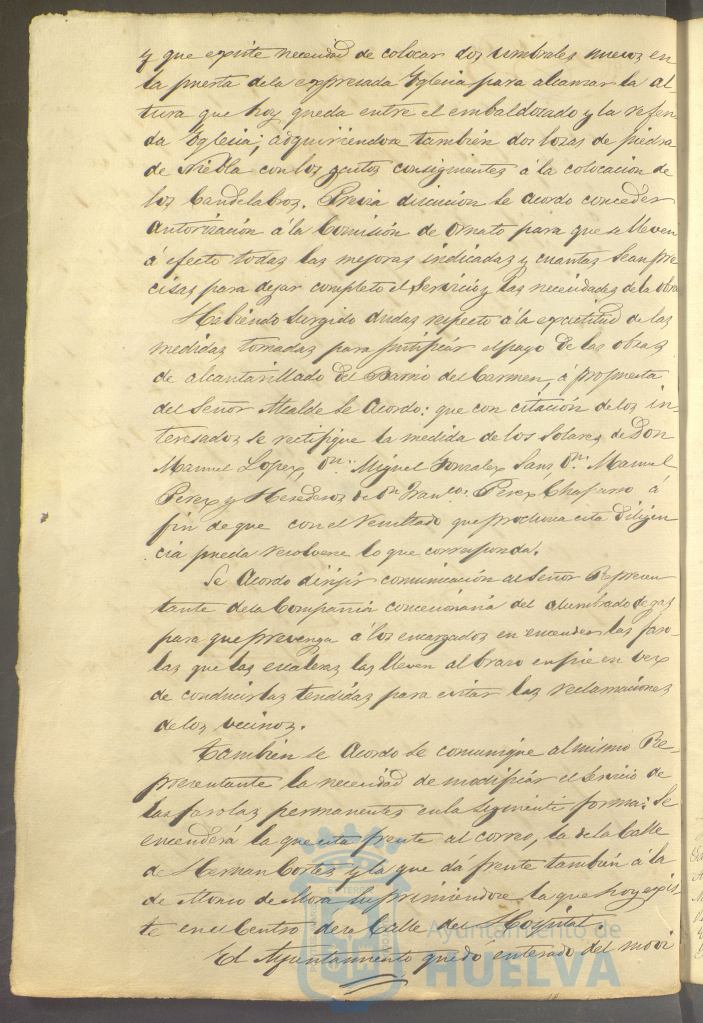 y que existe necesidad de colocar dos umbrales nuevos en
la puerta de la expresada Yglesia para alcanzar la al-
tura que hoy queda entre el embaldosado y la referi-
da Yglesia; adquiriendose tambien dos losas de piedra
de Niebla con los gastos consiguientes á la colocacion de
los Candelabros. Previa discusion se acordo conceder
autorización á la Comisión de Ornato para que se lleven
á efecto todas las mejoras indicadas y cuantas sean pre-
cisas para dejar completo el servicio y las necesidades de la obra
Habiendo surgido dudas respecto á la exactitud de las
medidas tomadas para justificar el pago de las obras
de alcantarillado del Barrio del Carmen, á propuesta
del Señor Alcalde se Acordo: que con citación de los in-
teresados se rectifique la medida de los Solares de Don
Manuel Lopez, Dn. Miguel Gonzalez Sanz, Dn. Manuel
Perez y Herederos de Dn. Franco. Perez Chaparro á
fin de que con el resultado que produzca esta diligen
cia pueda resolverse lo que corresponda.
Se Acordo dirijir comunicación al Señor Represen-
tante de la Compañia concesionaria del alumbrado de gas
para que prevenga á los encargados en encender las faro-
las que las escaleras las lleven al brazo en pie en vez
de conducirlas tendidas para evitar las reclamaciones
de los vecinos.
Tambien se Acordo se comunique al mismo Re-
presentante la necesidad de modificar el servicio de
las farolas permanentes en la siguiente forma: Se
encenderá la que esta frente al correo, la de la Calle
de Hernan Cortes y la que dá frente tambien á la
de Alonso de Mora suprimiendose la que hoy exis-
te en el Centro de la Calle del Hospital
El Ayuntamiento quedó enterado del movi
Ayuntamiento de
HUELVA